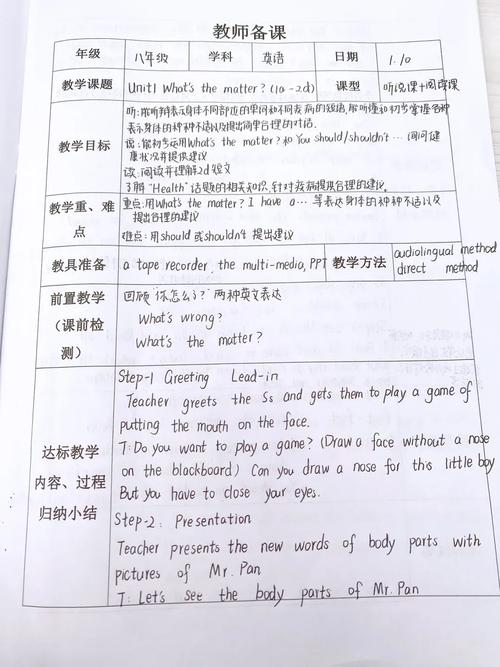 教师备课
年级 八年级 学科 英语 日期 1.10
教学课题 Unit1 What's the matter? (1a-2d) 课型 听说课+阅读课
教学目标
听:能听辨表示身体不同部位的单词和不同疾病的短语,能听懂和初步掌握各种
表示身体的种种不适以及提出简单合理的对话.
说:能初步运用What's the matter?和You should/shouldn't … 询问健
康状况并提供建议
读:阅读并理解2d短文
了解"Health"话题的相关知识,针对疾病提出合理的建议.
教学重、难点
重点:用What's the matter? I have a… 等表达身体的种种不适以及
提出合理的建议
难点:用should 或shouldn't 提出建议
教具准备 a tape recorder, the multi-media, PPT 教学方法 audiolingual method
direct method
前置教学
(课前检
测)
回顾"你怎么了?"两种英文表达
What's wrong?
What's the matter?
达标教学
内容、过程
归纳小结
Step-1 Greeting Lead-in
Teacher greets the Ss and gets them to play a game of
putting the mouth on the face.
T: Do you want to play a game? (Draw a face without a nose
on the blackboard) Can you draw a nose for this little boy
But you have to close your eyes.
Step-2: Presentation
Teacher presents the new words of body parts with
pictures of Mr. Pan
T: Let's see the body parts of Mr. Pan